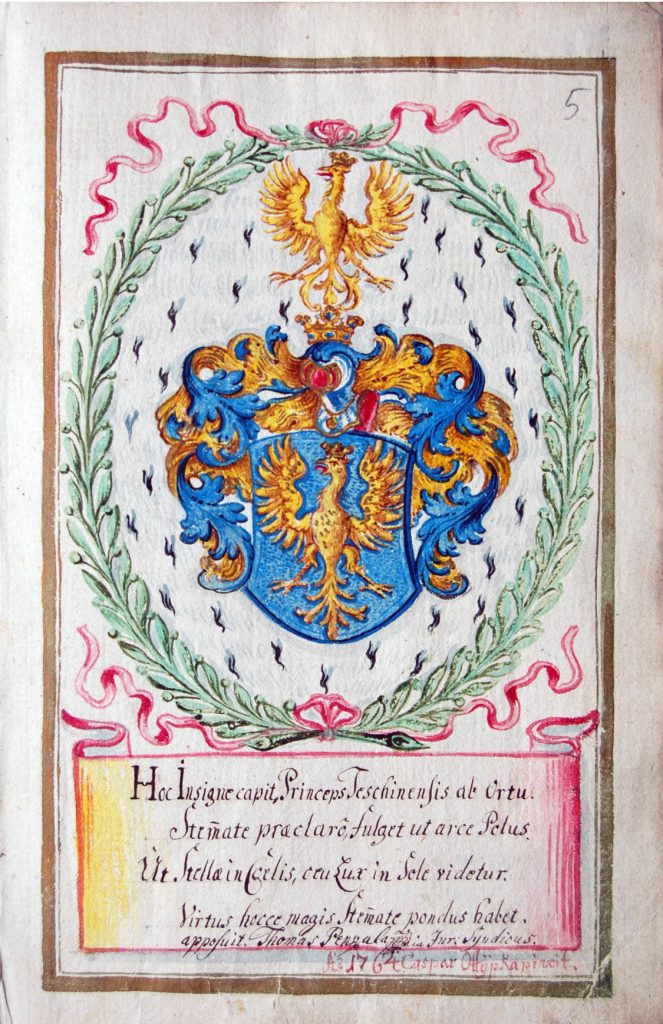 5
Hoc Insigne capit, Princeps Teschinensis ab Ortu.
Stem̄ate præclarõ, fulget ut arce Polus.
Ut Stellæ in Cœlis, ceu Lux in Sole videtur.
Virtus hocce magis Stem̄ate pondus habet.
apposuit. Thomas in Jur: Syndicus.
Aõ 1764 Caspar pinxit.